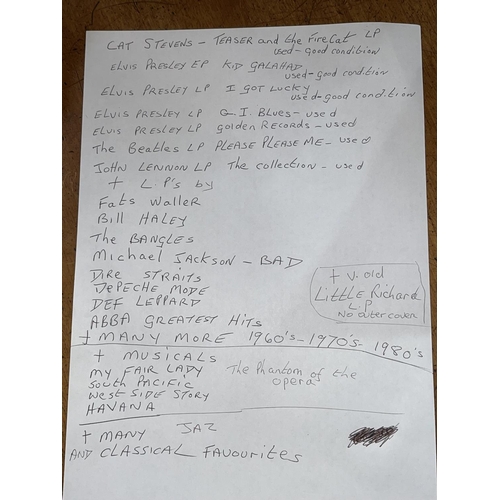 CAT STEVENS - TEASER and the FIRECAT LP
used - good condition
ELVIS PRESLEY EP KID GALAHAD
used - good condition
ELVIS PRESLEY LP I GOT LUCKY
used - good condition
ELVIS PRESLEY LP G.I. BLUES - used
ELVIS PRESLEY LP golden RECORDS - used
The Beatles LP PLEASE PLEASE ME - used
JOHN LENNON LP The collection - used
+ L.P's by
Fats Waller
Bill HALEY
The BANGLES
Michael JACKSON - BAD
DIRE STRAITS
DEPECHE MODE
DEF LEPPARD
ABBA GREATEST HITS
+ V. old
LITTLE Richard
L.P
NO outer cover
+ MANY MORE 1960's - 1970's - 1980's
+ MUSICALS
MY FAIR LADY
South PACIFIC
West SIDE STORY
HAVANA
The Phantom of the
opera
+ MANY JAZ
AND CLASSICAL FAVOURITES